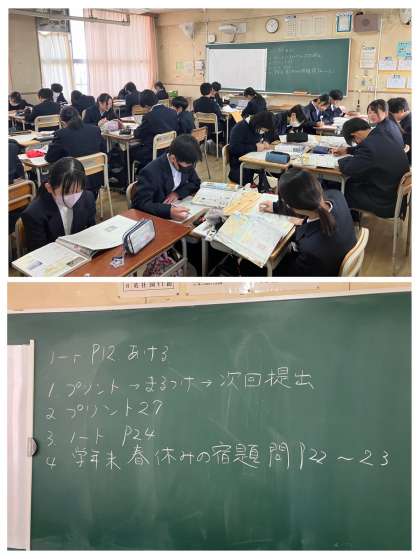 ノート P12 あける
1. プリント→まるつけ→次回提出
2. プリント27
3. ノート P24
4 学年末 春休みの宿題 問P22～23